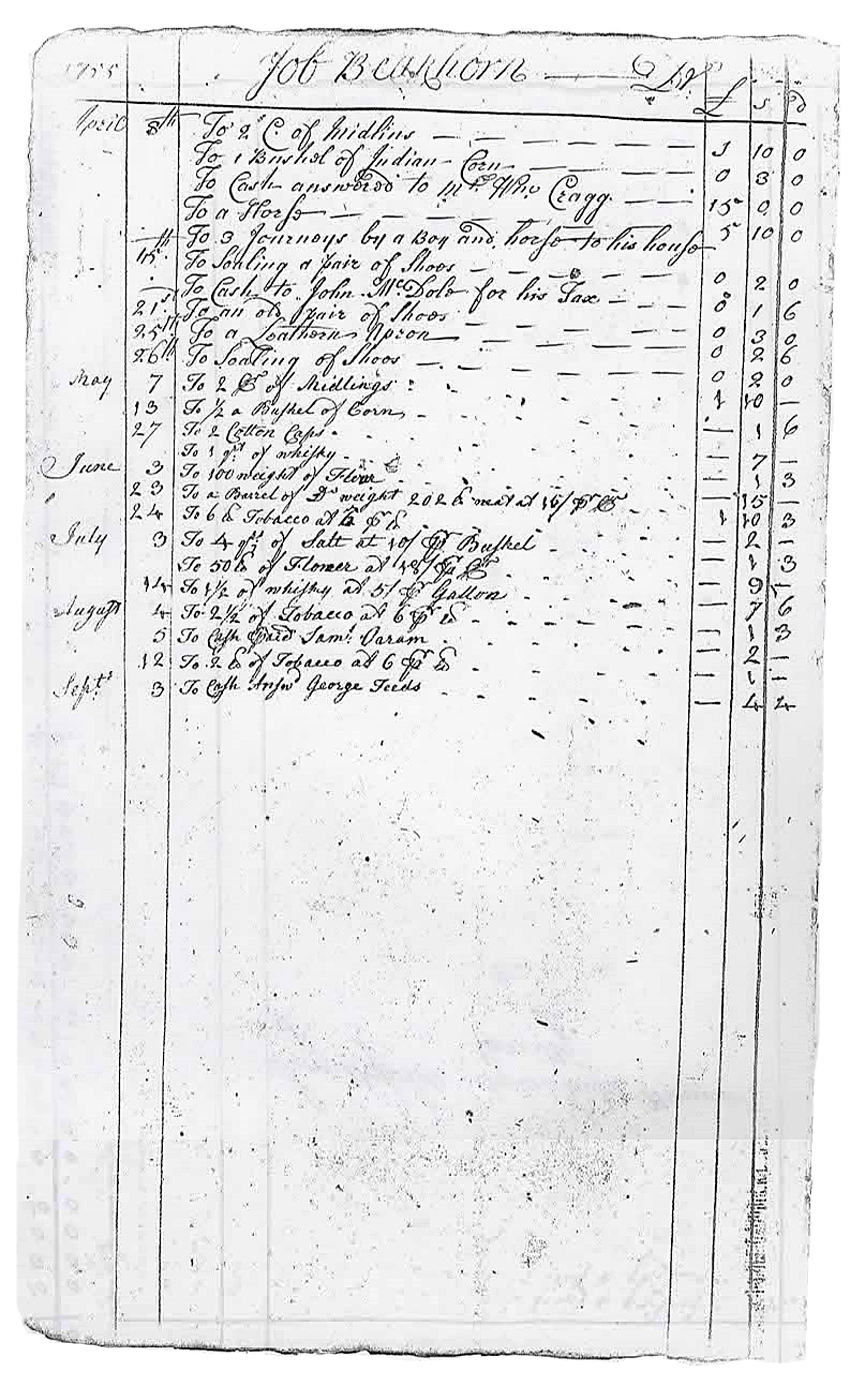 1755 Job Beakhorn — Dr. £ s d
April 8th To 2 C. of Midlins — — — 1 10 0
To 1 Bushel of Indian Corn — — — 0 3 0
To Cash answered to Mr. Wm. Cragg — — 15 0 0
To a Horse — — — 5 10 0
To 3 Journeys by a Boy and horse to his house
15th To Soaling a pair of Shoos — — — 0 2 0
To Cash to John McDole for his Tax — 0 1 6
21st To an old pair of Shoos — — — 0 3 0
25th To a Leathern Apron — — — 0 2 6
26th To Soaling of Shoos — — — 0 2 0
May 7 To 2 C of Midlings : 1 10 —
13 To ½ a Bushel of Corn — — 1 6
27 To 2 Cotton Caps — 7 —
To 1 qrt of whisky — 1 3
June 3 To 100 weight of Flour — 15 —
23 To a Barel of Do weight 202 lb neat at 15/ pr C 1 10 3
24 To 6 lb Tobacco at pr lb — 2 —
July 3 To 4 qts of Salt at 10/ pr Bushel — 1 3
To 50 lb of Flower at 18/ pr C — 9 —
14 To 1½ of whisky at 5/ pr Gallon — 7 6
August 4 To 2½ of Tobacco at 6 pr lb — 1 3
5 To Cash Paid Saml. Daram — 2 —
12 To 2 lb of Tobacco at 6 pr lb — 1 —
Sept. 3 To Cash Answd George Teeds — 4 4